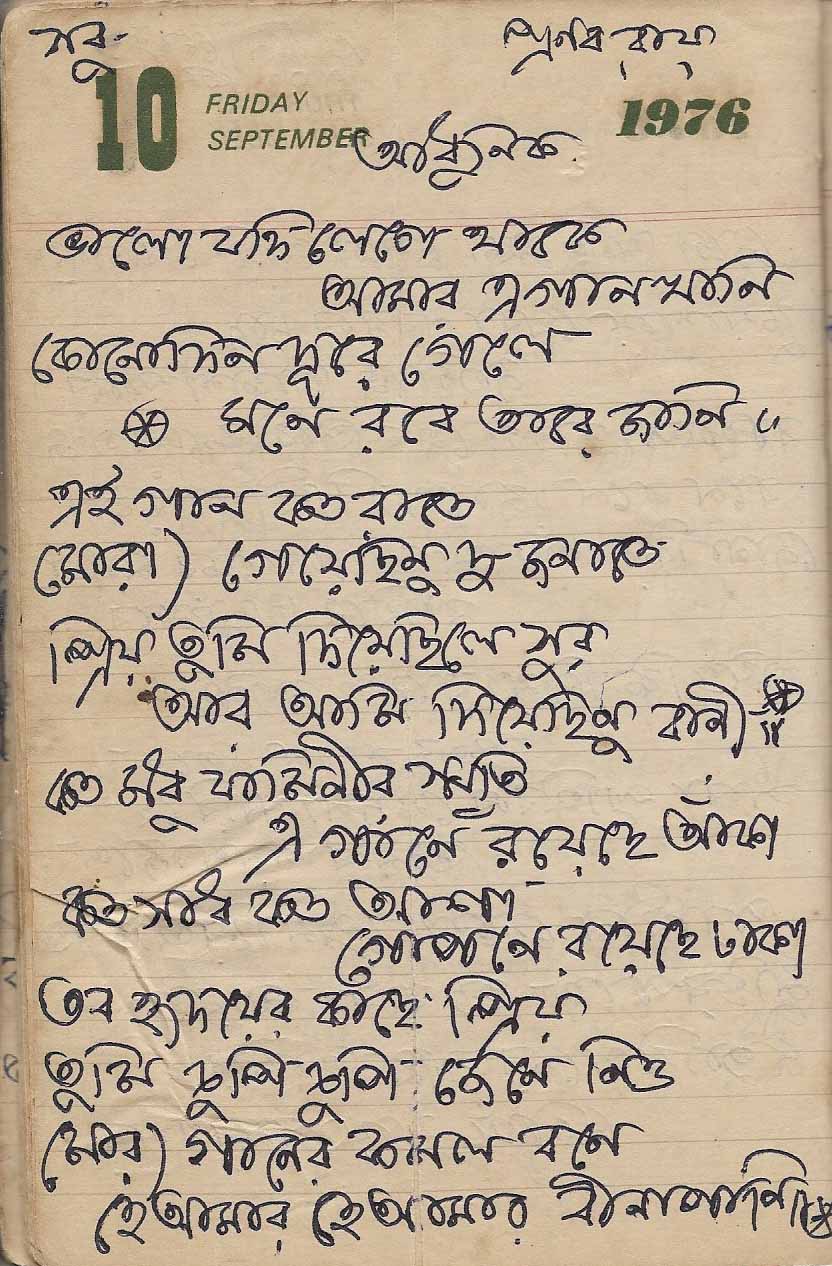 প্রণব রায়
10 FRIDAY SEPTEMBER 1976
আধুনিক
ভালো যদি লেগে থাকে
আমার এ গান খানি
কোনোদিন দূরে গেলে
মনে রবে তারে জানি॥
এই গান কত রাতে
মোরা) গেয়েছিনু দুজনাতে
প্রিয় তুমি দিয়েছিলে সুর
আর আমি দিয়েছিনু বানী॥
কত মধু যামিনীর স্মৃতি
এ গানে রয়েছে আঁকা
কত সাধ কত আশা
গোপনে রয়েছে ঢাকা
তব হৃদয়ের কাছে প্রিয়
তুমি চুপি চুপি জেনে নিও
মোর) গানের কমল বনে
হে আমার হে আমার বীনাপানি॥